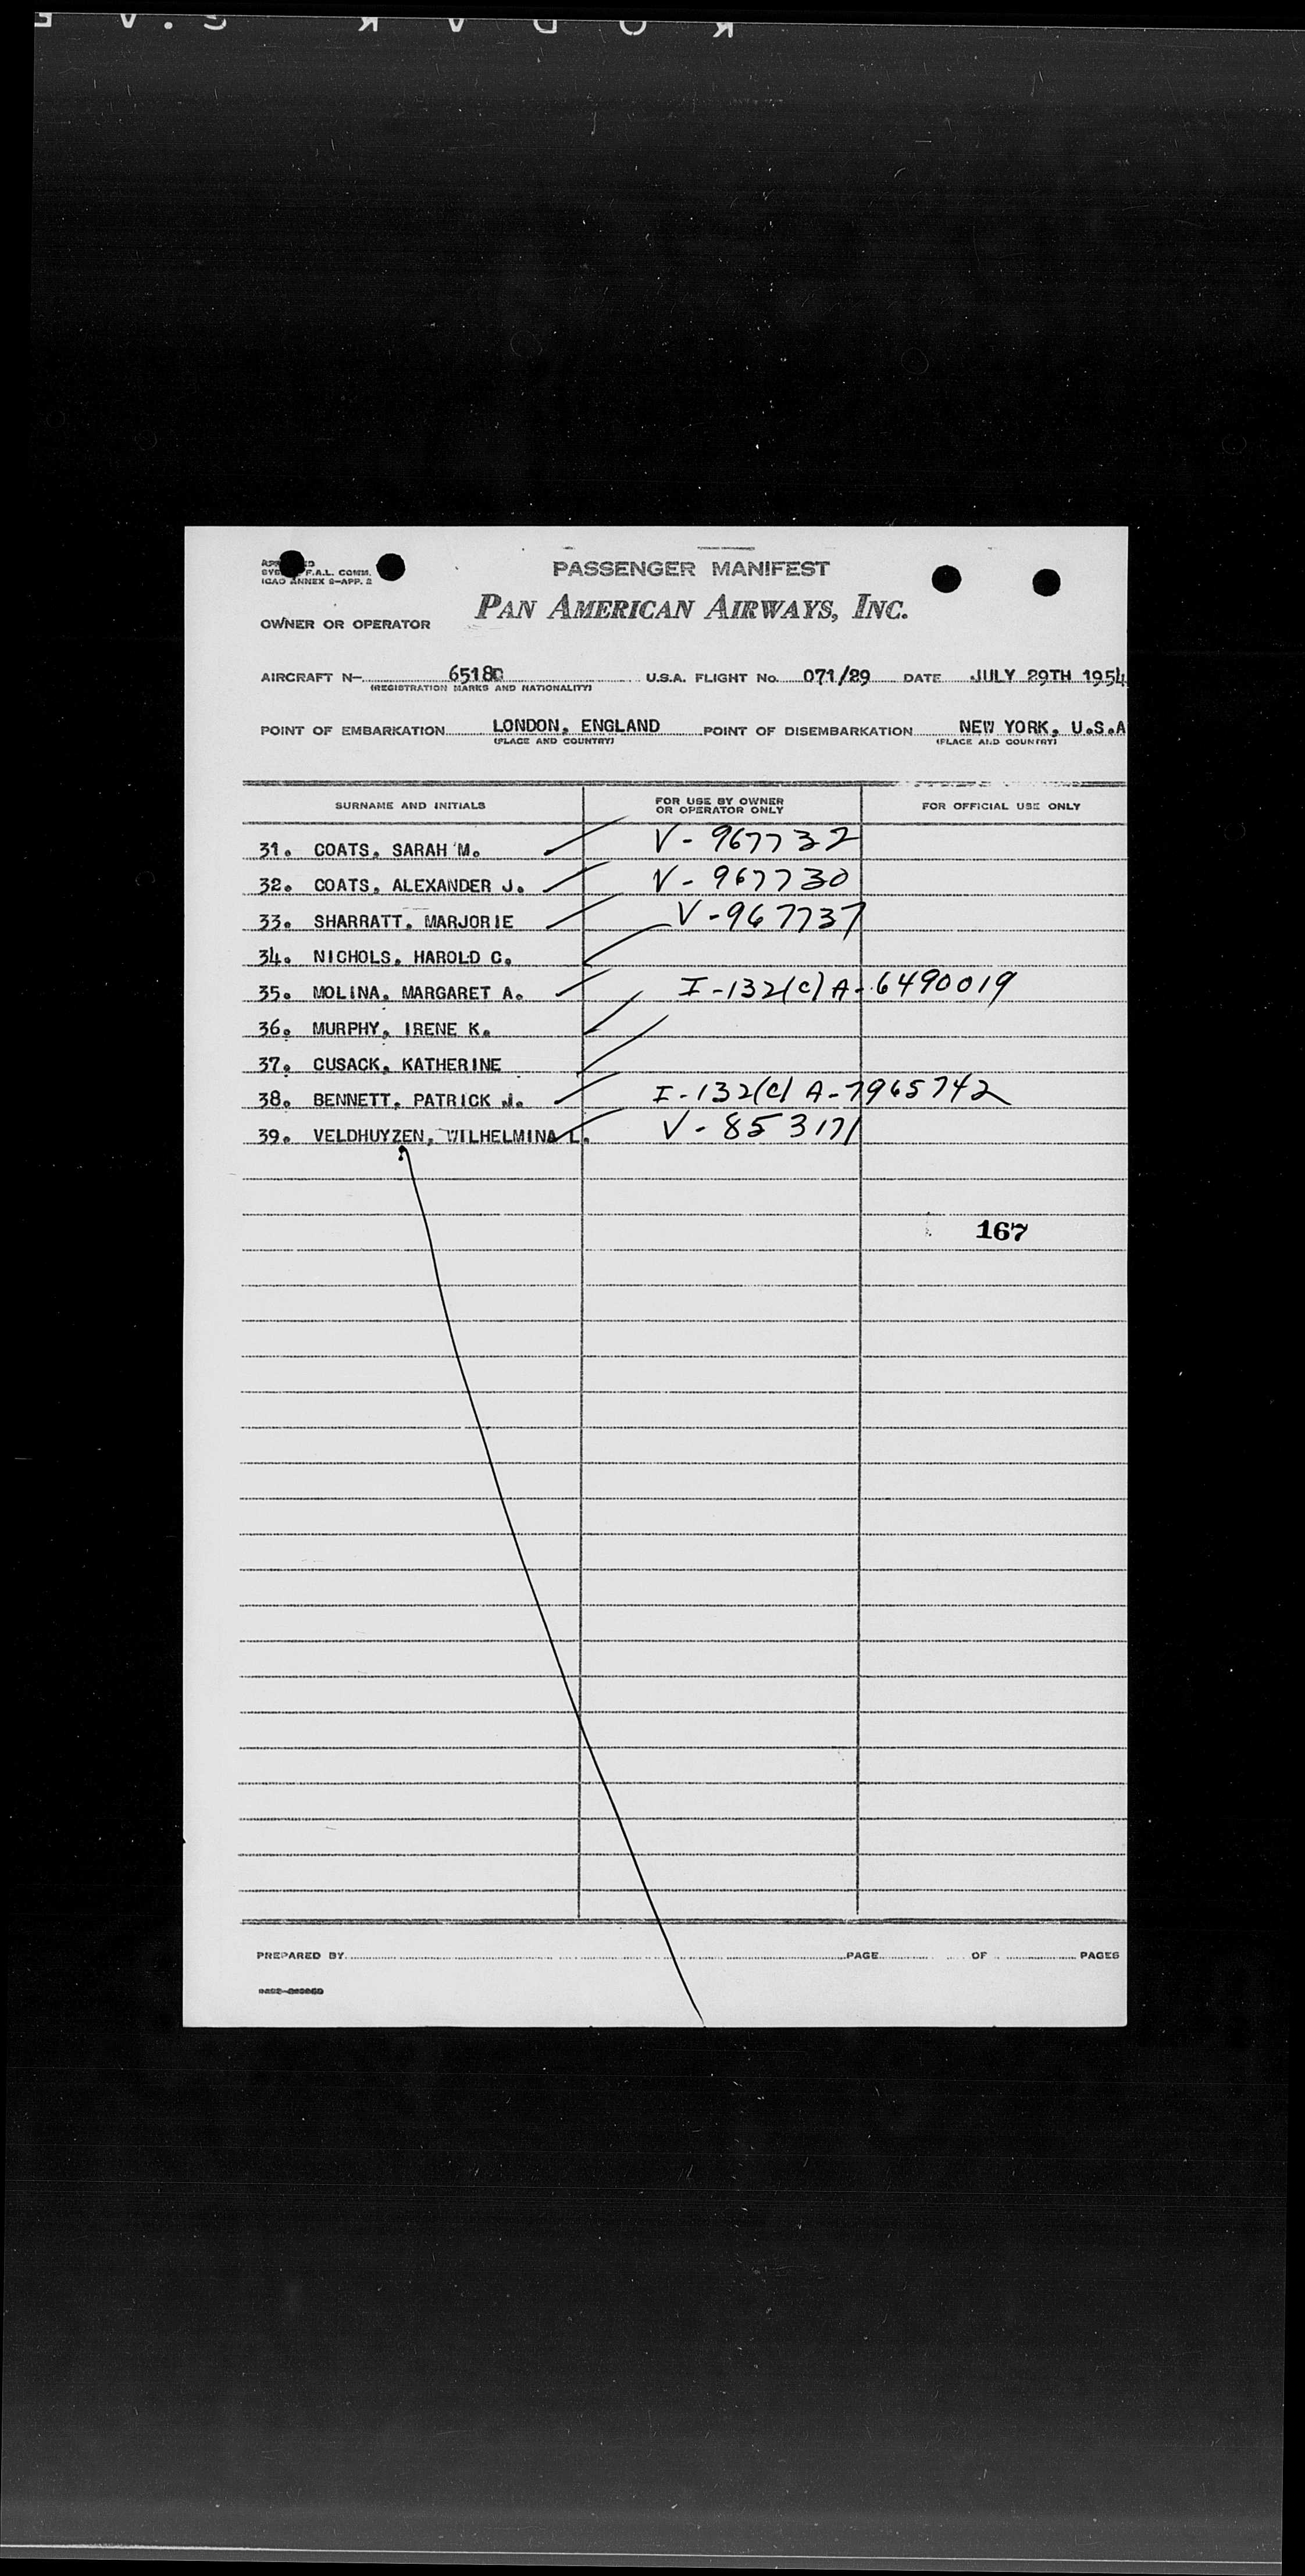 PASSENGER MANIFEST
F.A.L. COMM.
ICAO ANNEX 9-APP. 2
PAN AMERICAN AIRWAYS, INC.
OWNER OR OPERATOR
AIRCRAFT N- 6518 U.S.A. FLIGHT No. 071/29 DATE JULY 29TH 1954
(REGISTRATION MARKS AND NATIONALITY)
POINT OF EMBARKATION LONDON, ENGLAND POINT OF DISEMBARKATION NEW YORK, U.S.A
(PLACE AND COUNTRY) (PLACE AND COUNTRY)
SURNAME AND INITIALS FOR USE BY OWNER OR OPERATOR ONLY FOR OFFICIAL USE ONLY
31. COATS, SARAH M. V-967732
32. COATS, ALEXANDER J. V-967730
33. SHARRATT, MARJORIE V-967737
34. NICHOLS, HAROLD C.
35. MOLINA, MARGARET A. I-132(C) A-6490019
36. MURPHY, IRENE K.
37. CUSACK, KATHERINE
38. BENNETT, PATRICK J. I-132(C) A-7965742
39. VELDHUYZEN, WILHELMINA L. V-853171
167
PREPARED BY PAGE OF PAGES